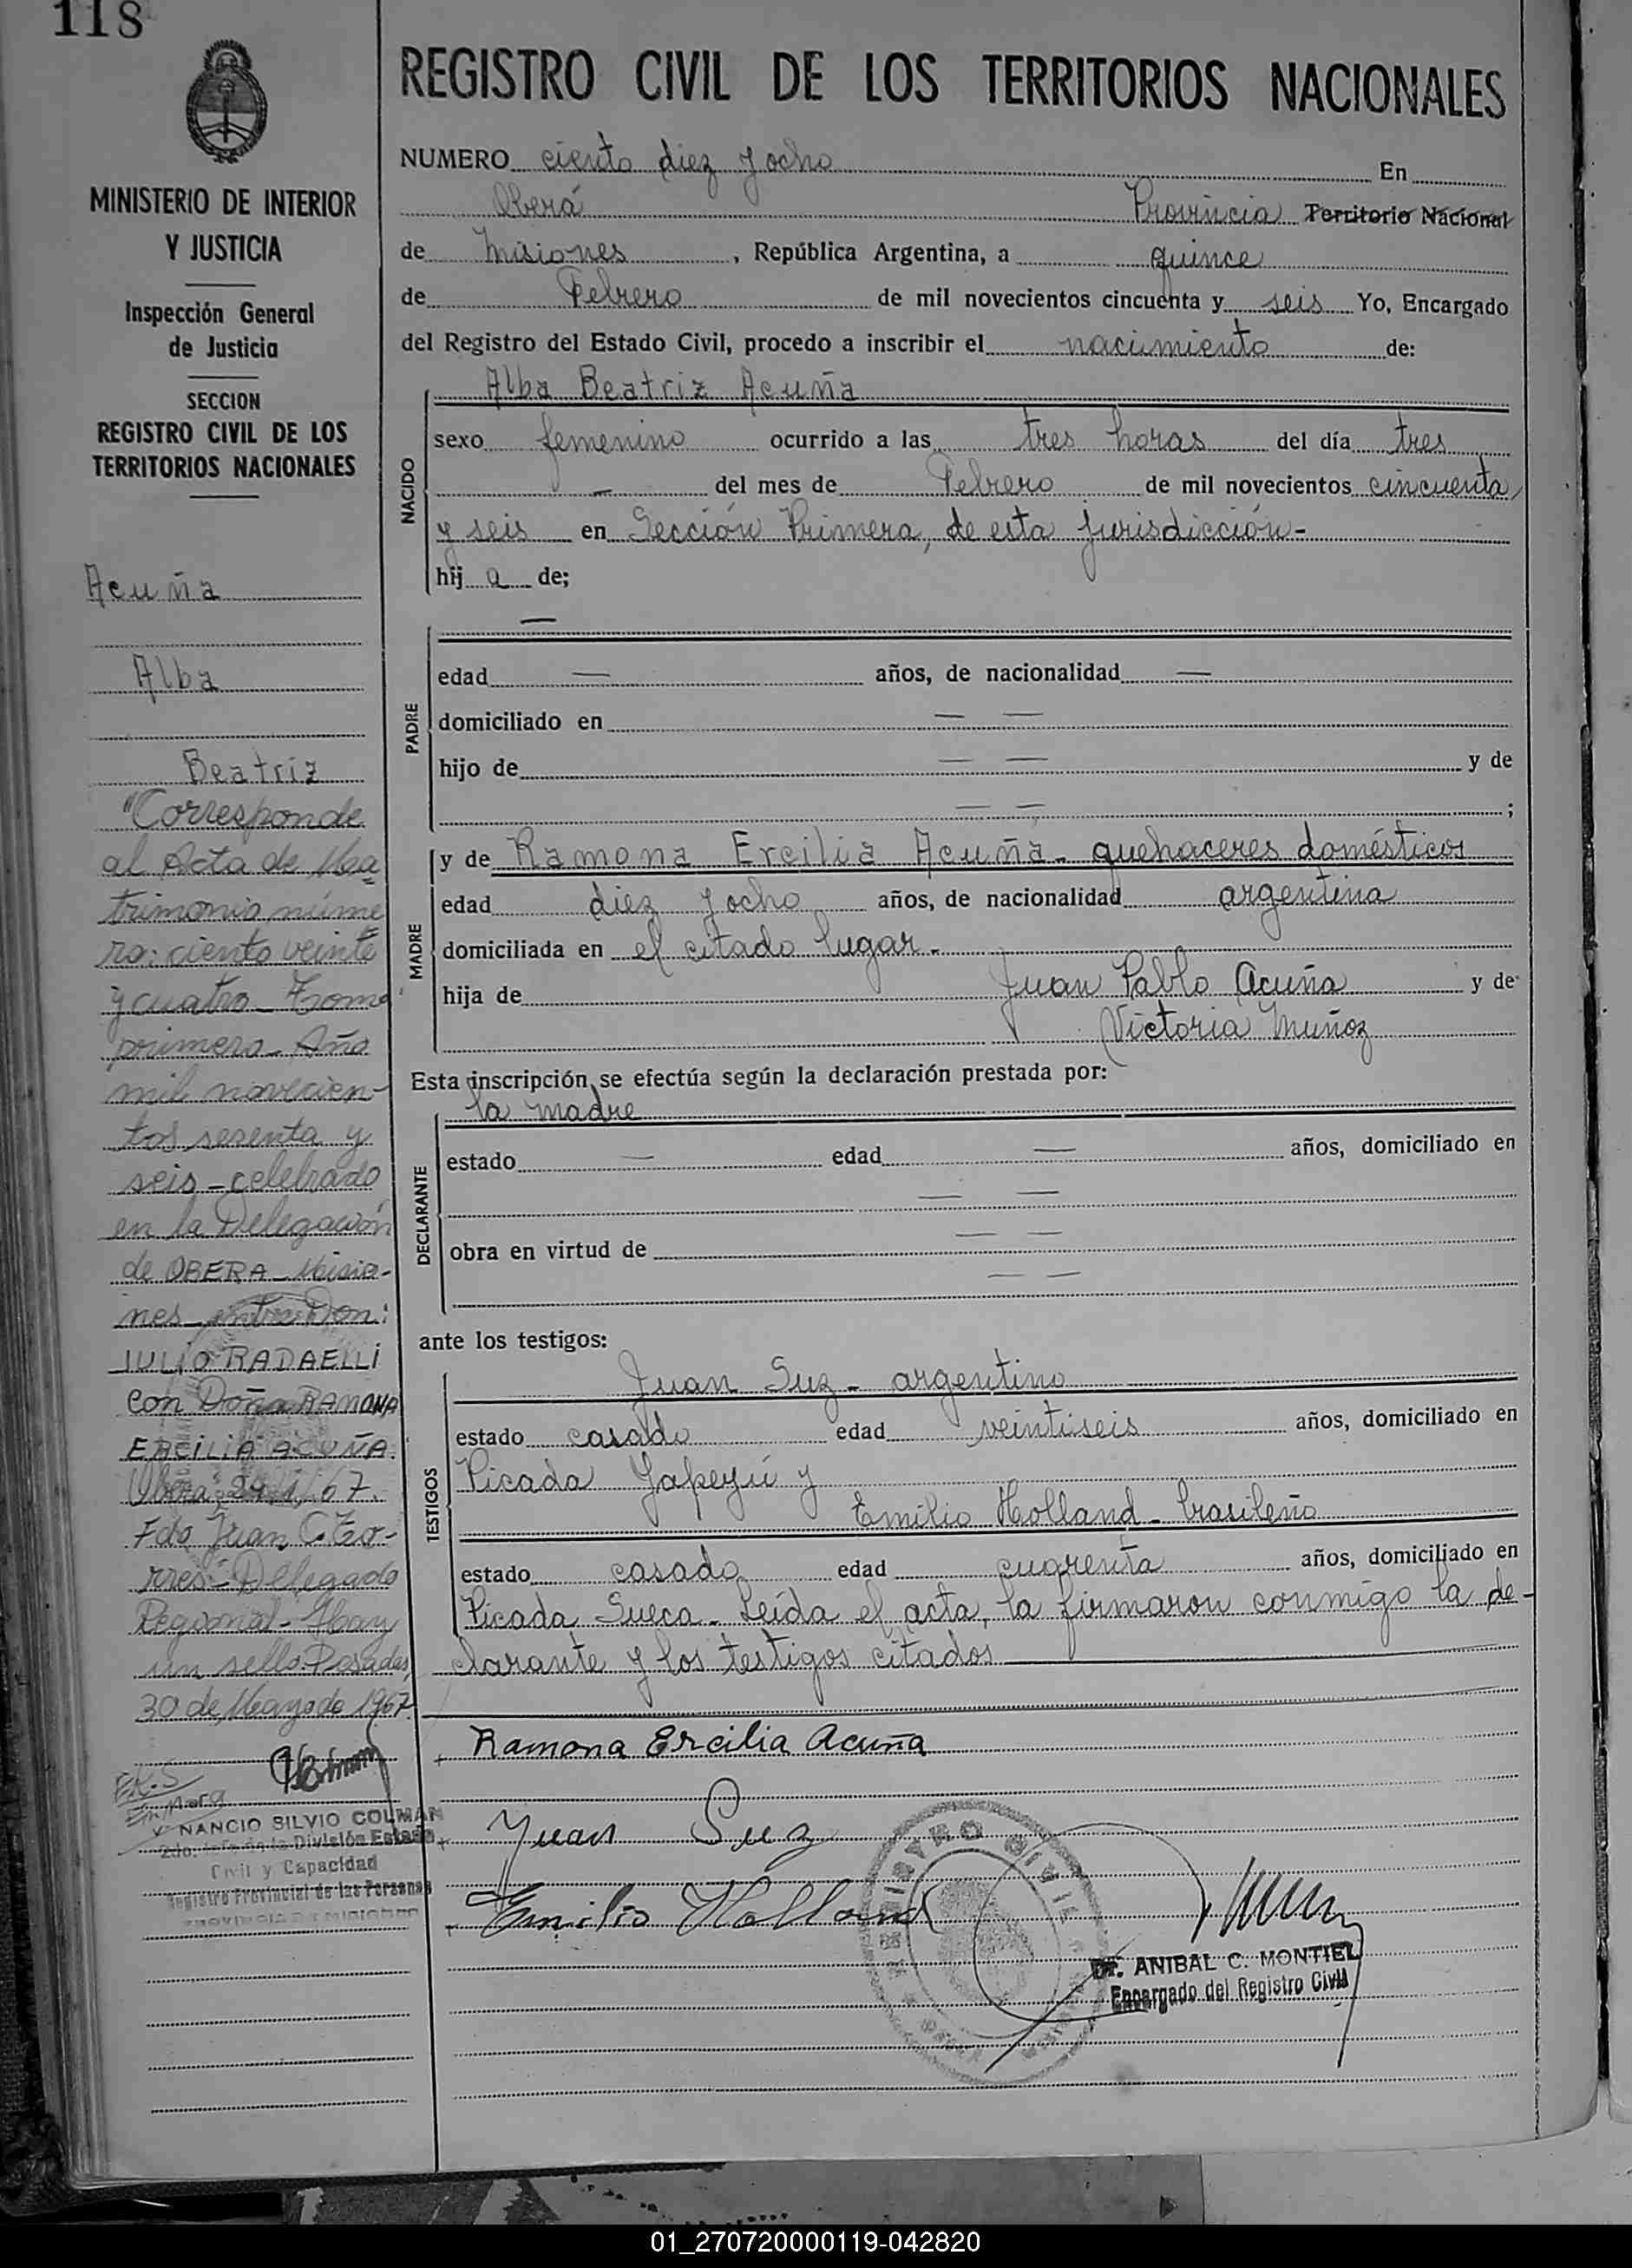 118
MINISTERIO DE INTERIOR
Y JUSTICIA
Inspección General
de Justicia
SECCION
REGISTRO CIVIL DE LOS
TERRITORIOS NACIONALES
Acuña
Alba
Beatriz
"Corresponde
al Acta de Ma
trimonio núme
ro: ciento veinte
y cuatro - Tomo
primero - Año
mil novecien-
tos sesenta y
seis - celebrado
en la Delegación
de OBERA - Misio-
nes - entre Don:
JULIO RADAELLI
con Doña RAMONA
ERCILIA ACUÑA.
Oberá 67.
Fdo Juan C. To-
rres - Delegado
Regional - Hay
un sello. Posadas,
30 de Mayo de 1967.
VENANCIO SILVIO COLMAN
2do. Jefe de la División Estado
Civil y Capacidad
Registro Provincial de las Personas
REGISTRO CIVIL DE LOS TERRITORIOS NACIONALES
NUMERO ciento diez y ocho En
Oberá Provincia Territorio Nacional
de Misiones, República Argentina, a quince
de Febrero de mil novecientos cincuenta y seis Yo, Encargado
del Registro del Estado Civil, procedo a inscribir el nacimiento de:
Alba Beatriz Acuña
NACIDO
sexo femenino ocurrido a las tres horas del día tres
— del mes de Febrero de mil novecientos cincuenta
y seis en Sección Primera, de esta jurisdicción-
hij a de;
—
PADRE
edad — años, de nacionalidad —
domiciliado en — —
hijo de — — y de
— — ;
MADRE
y de Ramona Ercilia Acuña - quehaceres domésticos
edad diez y ocho años, de nacionalidad argentina
domiciliada en el citado lugar -
hija de Juan Pablo Acuña y de
Victoria Muñoz
Esta inscripción se efectúa según la declaración prestada por:
la madre
DECLARANTE
estado — edad — años, domiciliado en
— —
obra en virtud de — —
— —
ante los testigos:
TESTIGOS
Juan Suz - argentino
estado casado edad veintiseis años, domiciliado en
Picada Yapeyú y
Emilio Holland - brasileño
estado casado edad cuarenta años, domiciliado en
Picada Sueca - Leída el acta, la firmaron conmigo la de-
clarante y los testigos citados
Ramona Ercilia Acuña
Juan Suz
Emilio Holland
REGISTRO CIVIL
Dr. ANIBAL C. MONTIEL
Encargado del Registro Civil
01_270720000119-042820